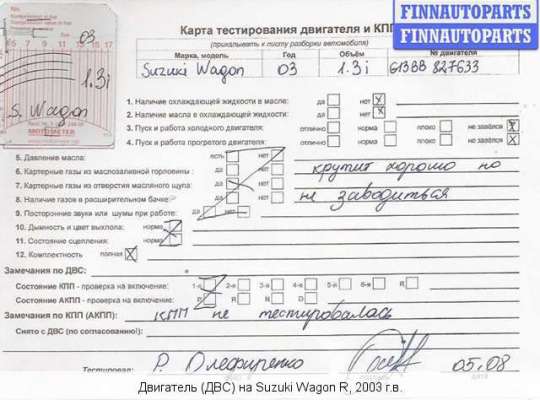 FINNAUTOPARTS
FINNAUTOPARTS
Карта тестирования двигателя и КПП
(прикалывать к листу разборки автомобиля)
Марка, модель Год Объём № двигателя
Suzuki Wagon 03 1.3i G13BB 827633
03
1.3i
S. Wagon
MOTOMETER
1. Наличие охлаждающей жидкости в масле: да нет X
2. Наличие масла в охлаждающей жидкости: да нет X
3. Пуск и работа холодного двигателя: отлично норма плохо не завёлся X
4. Пуск и работа прогретого двигателя: отлично норма плохо не завёлся X
5. Давление масла: есть нет
6. Картерные газы из маслозаливной горловины : да нет крутит хорошо но
7. Картерные газы из отверстия масляного щупа: да нет не заводиться
8. Наличие газов в расширительном бачке: да нет
9. Посторонние звуки или шумы при работе: да нет
10. Дымность и цвет выхлопа: норма
11. Состояние сцепления: норма
12. Комплектность полная X
Замечания по ДВС:
Состояние КПП - проверка на включение: 1-я 2-я 3-я 4-я 5-я 6-я R
Состояние АКПП - проверка на включение: P R N D
Замечания по КПП (АКПП): КПП не тестировалась
Снято с ДВС (по согласованию!):
Тестировал: Р. Олефиренко 05.08
Двигатель (ДВС) на Suzuki Wagon R, 2003 г.в.